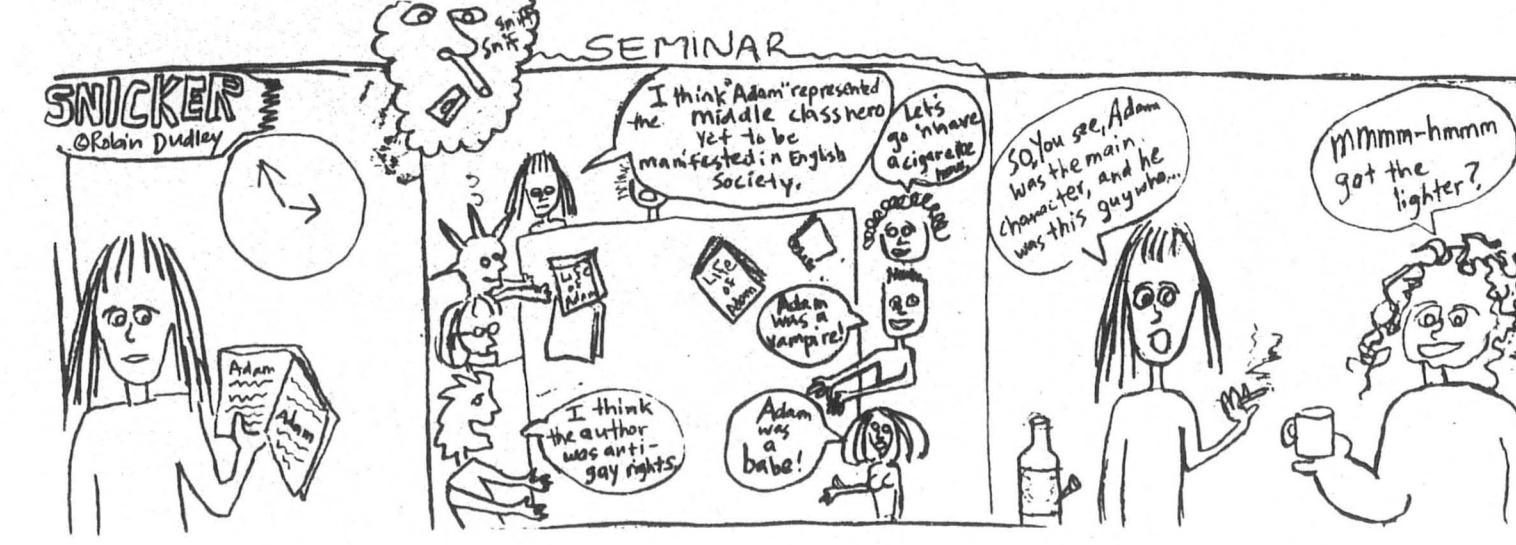 SNICKER
©Robin Dudley
Adam
Adam
sniff
snif
SEMINAR
I think "Adam" represented
the middle class hero
yet to be
manifested in English
Society.
Let's
go 'n have
a cigarette
Life
of
Adam
Life
of
Adam
Adam
was a
vampire!
I think
the author
was anti-
gay rights.
Adam
was
a
babe!
So, you see, Adam
was the main
character, and he
was this guy who...
mmmm-hmmm
got the
lighter?